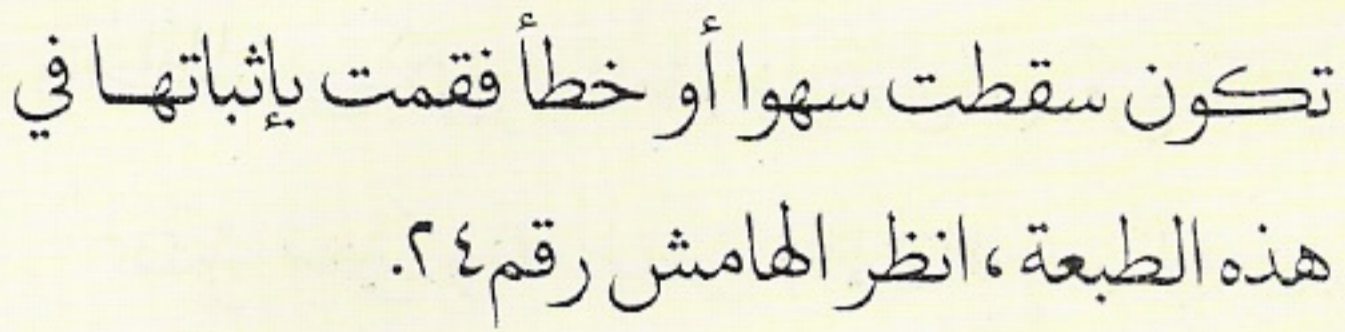 تكون سقطت سهوا أو خطأ فقمت بإثباتها في
هذه الطبعة، انظر الهامش رقم ٢٤.